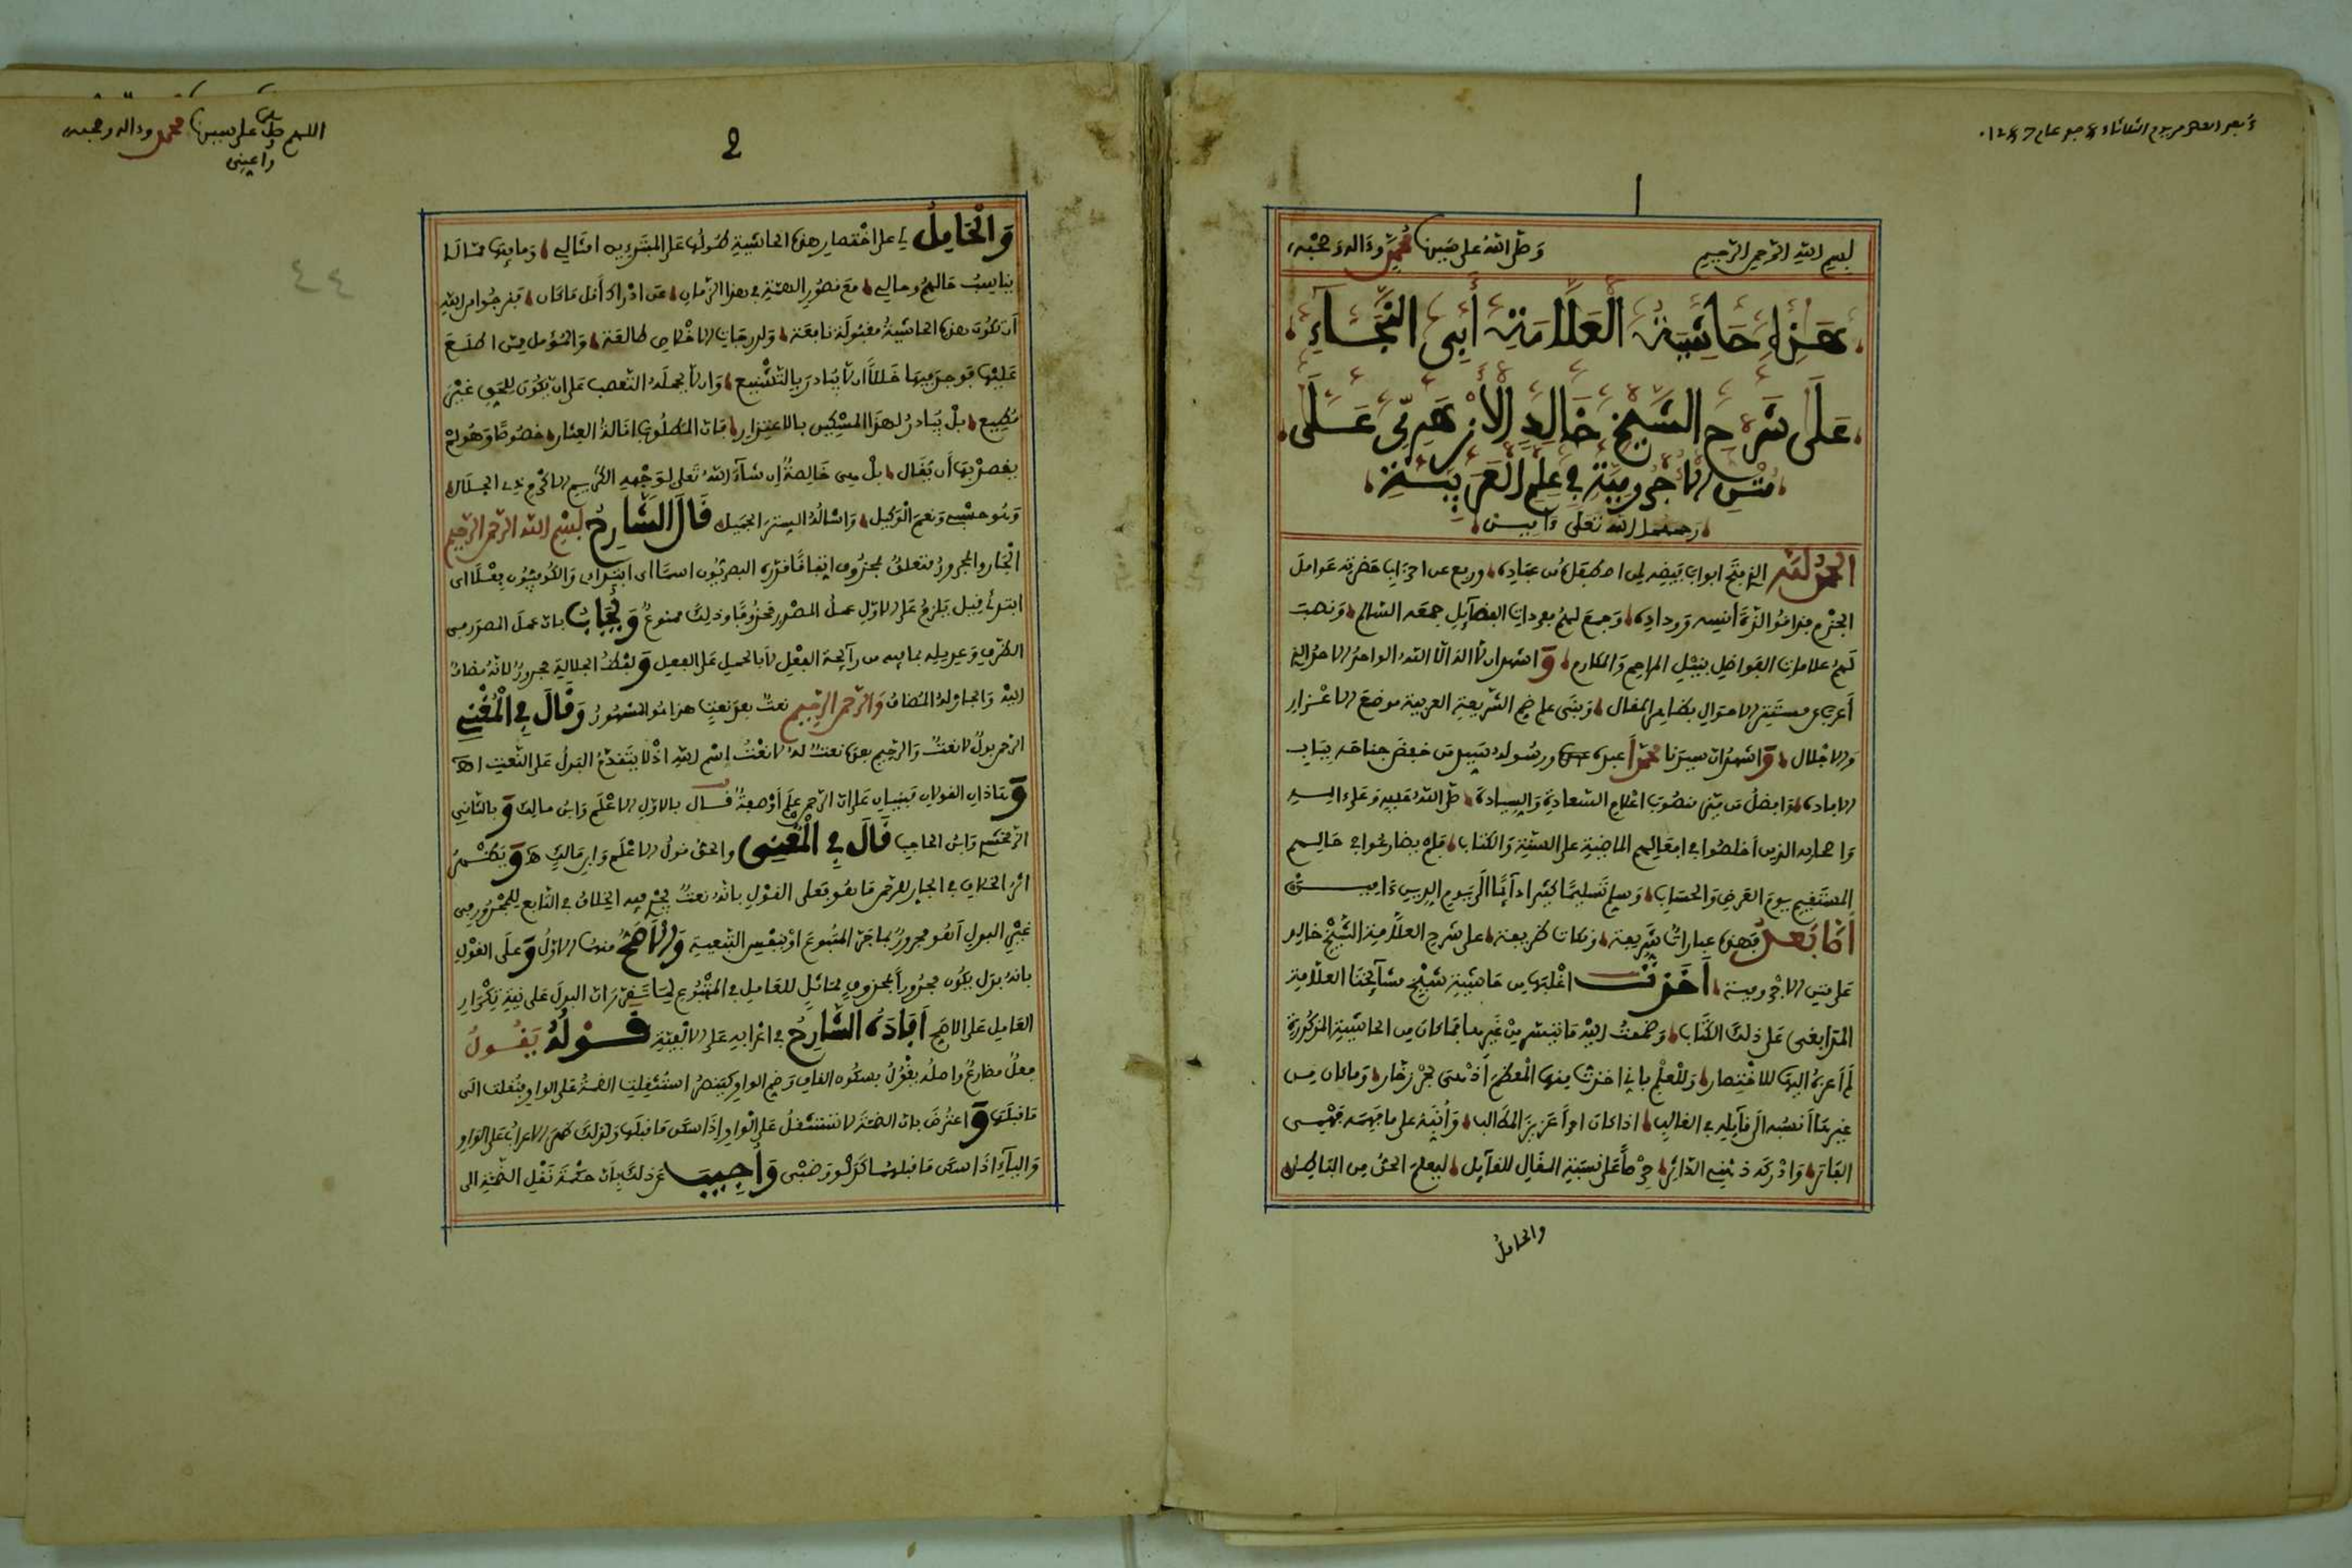 بعد العصر من يوم الثلاثاء
بسم الله الرحمن الرحيم وصلى الله على سيدنا محمد وءاله وصحبه
هذه حاشية العلامة أبى النجاء
على شرح الشيخ خالد الأزهري على
متن الأجرومية في علم العربية
رحمهما الله تعلى ءاميـن
الحمد لله الذي فتح ابواب فيضه لمن اصطفاه من عباده ورفع عن احزاب حضرته عوامل
الجزم فداموا لذة أنسه ووداده وجمع لهم مفردات الفضآئل جمعه السالم ونصب
لهم علامات الفواضل بنيل المراحم والمكارم واشهد ان لا اله الا الله الواحد الاحد الذي
أعرب عن مستتر الاحوال بظاهر المقال وبنى على ضم الشريعة العربية موضع الاعزاز
والاجلال واشهد ان سيدنا محمدا عبده ورسوله سيد من خفض جناحه بباب
الافادة وافضل من نصب اعلام السعادة والسيادة صلى الله عليه وعلى ءاله
واصحابه الذين أخلصوا في افعالهم الماضية على السنة والكتاب فلم يضارعوا في حالهم
المستقيم يوم العرض والحساب وسلم تسليما كثيرا دآئما الى يوم الدين ءاميـن
أما بعد فهذه عبارات شريفة ونكات ظريفة على شرح العلامة الشيخ خالد
على متن الاجرومية أخذت اغلبها من حاشية شيخ مشآئخنا العلامة
المدابغى على ذلك الكتاب وضممت اليه ما تيسر من غيرها فما كان من الحاشية المذكورة
لم أعزه اليها للاختصار وللعلم باني اخذت منها المعظم اذ هي بحر زخار وما كان من
غيرها أنسبه الى قآئله في الغالب اذا كان امرا عزيز المطالب وأنبه على ما فهمه فهمى
الفاتر وادركه ذهني الداثر حرصا على نسبة المقال للقآئل ليعلم الحق من الباطل
والحامل
اللهم صل على سيدنا محمد وءاله وصحبه
2
٤٤
والحامل لي على اختصار هذه الحاشية طولها على المبتدءين امثالي وما فيها مما لا
يناسب حالهم وحالي مع قصور الهمة في هذا الزمان عن ادراك أقل ما كان فنرجوا من الله
أن تكون هذه الحاشية مقبولة نافعة ولدرجات الاخلاص طالعة والمؤمل ممن اطلع
عليها فوجد فيها خللا ان لا يبادر بالتشنيع وان لا يحمله التعصب على ان يكون للحق غير
مطيع بل يبادر لهذا المسكين بالاعتذار فان المطلوب اقالة العثار خصوصا وهو لم
يقصد بها أن يقال بل هى خالصة ان شآء الله تعلى لوجهه الكريم الاكرم ذي الجلال
وهو حسبى ونعم الوكيل واسأله الستر الجميل قال الشارح بسم الله الرحمن الرحيم
الجار والمجرور متعلق بمحذوف اتفاقا قدره البصريون اسما اي ابتداءي والكوفيون فعلا اى
ابتدئ قيل يلزم على الاول عمل المصدر محذوفا وذلك ممنوع ويجاب بان عمل المصدر في
الظرف وعديله بما فيه من رآئحة الفعل لا بالحمل على الفعل ولفظ الجلالة مجرور لانه مضاف
اليه والجار له المضاف والرحمن الرحيم نعت بعد نعت هذا هو المشهور وقال في المغني
الرحمن بدل لا نعت والرحيم بعده نعت له لا نعت لاسم الله اذ لا يتقدم البدل على النعت اهـ
وهاذان القولان مبنيان على ان الرحمن علم أو صفة قال بالاول الاعلم وابن مالك وبالثانى
الزمخشري وابن الحاجب قال في المغنى والحق قول الاعلم وابن مالك هـ ويظهر
اثر الخلاف في الجار للرحمن ما هو فعلى القول بانه نعت يجري فيه الخلاف في التابع للمجرور من
غير البدل أهو مجرور بما جر المتبوع أو بنفس التبعية والأصح منها الاول وعلى القول
بانه بدل يكون مجرورا بمحذوف مماثل للعامل في المتبوع لما تقرر ان البدل على نية تكرار
العامل على الاصح أفاده الشارح في اعرابه على الالفية قـوله يقـول
فعل مضارع واصله يقول بسكون القاف وضم الواو كينصر استثقلت الضمة على الواو فنقلت الى
ما قبلها واعترض بان الضمة لا تستثقل على الواو اذا سكن ما قبلها ولذلك ظهر الاعراب على الواو
واليآء اذا سكن ما قبلهما كدلو وضبى وأجيب عن ذلك بان حكمة نقل الضمة الى